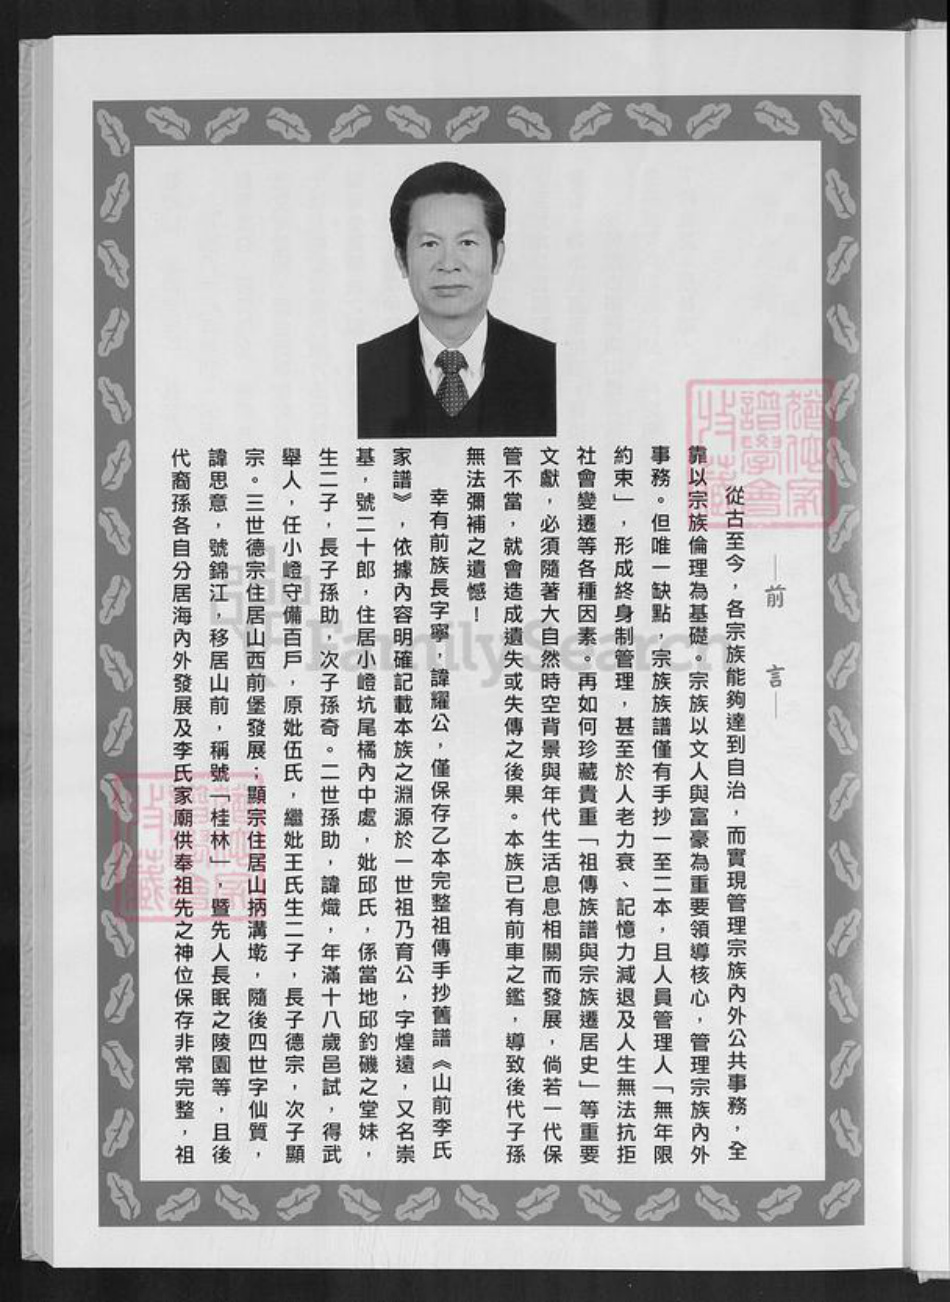 —前　言—
從古至今，各宗族能夠達到自治，而實現管理宗族內外公共事務，全
靠以宗族倫理為基礎。宗族以文人與富豪為重要領導核心，管理宗族內外
事務。但唯一缺點，宗族族譜僅有手抄一至二本，且人員管理人「無年限
約束」，形成終身制管理，甚至於人老力衰、記憶力減退及人生無法抗拒
社會變遷等各種因素。再如何珍藏貴重「祖傳族譜與宗族遷居史」等重要
文獻，必須隨著大自然時空背景與年代生活息息相關而發展，倘若一代保
管不當，就會造成遺失或失傳之後果。本族已有前車之鑑，導致後代子孫
無法彌補之遺憾！
幸有前族長字寧，諱耀公，僅保存乙本完整祖傳手抄舊譜《山前李氏
家譜》，依據內容明確記載本族之淵源於一世祖乃育公，字煌遠，又名崇
基，號二十郎，住居小嶝坑尾橘內中處，妣邱氏，係當地邱釣磯之堂妹，
生二子，長子孫助，次子孫奇。二世孫助，諱熾，年滿十八歲邑試，得武
舉人，任小嶝守備百戶，原妣伍氏，繼妣王氏生二子，長子德宗，次子顯
宗。三世德宗住居山西前堡發展；顯宗住居山柄溝墘，隨後四世字仙質，
諱思意，號錦江，移居山前，稱號「桂林」，暨先人長眠之陵園等，且後
代裔孫各自分居海內外發展及李氏家廟供奉祖先之神位保存非常完整，祖
FamilySearch